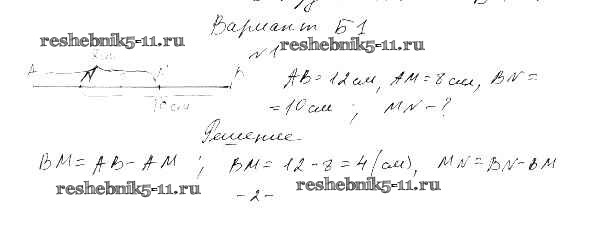 Вариант Б1
reshebnik5-11.ru
reshebnik5-11.ru
№1
A N B
AB = 12 см, AM = 8 см, BN =
10 см
= 10 см ; MN - ?
Решение.
BM = AB - AM ; BM = 12 - 8 = 4 (см), MN = BN - BM
reshebnik5-11.ru
reshebnik5-11.ru
- 2 -